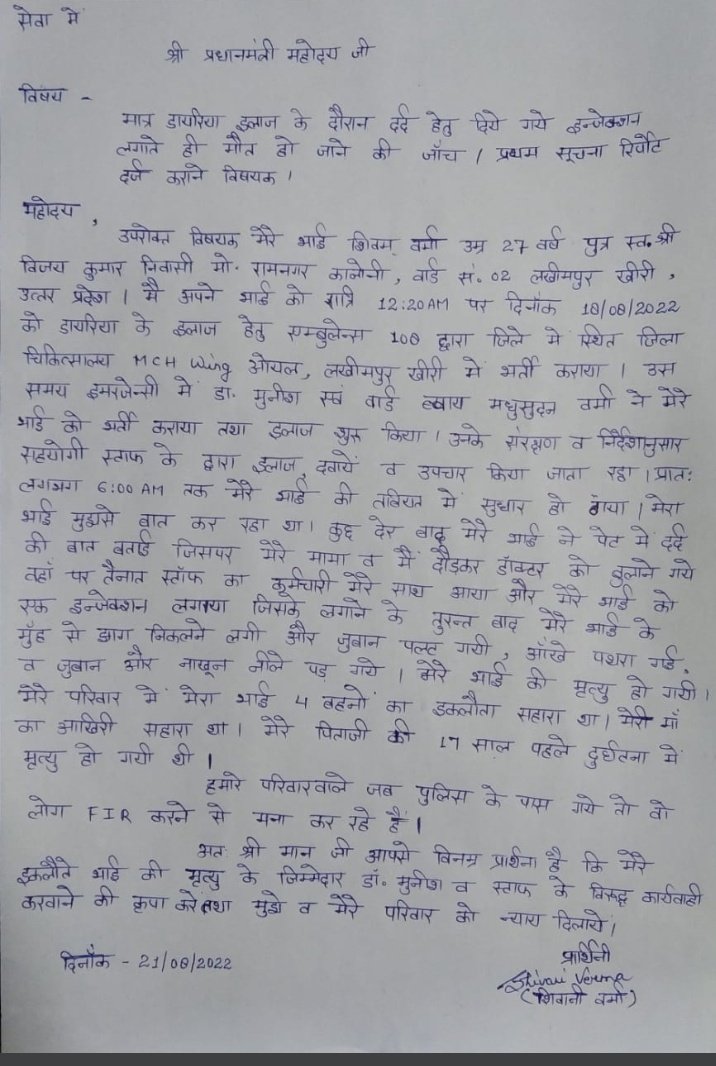 सेवा में
श्री प्रधानमंत्री महोदय जी
विषय -
मात्र डायरिया इलाज के दौरान दर्द हेतु दिये गये इन्जेक्शन
लगाते ही मौत हो जाने की जाँच / प्रथम सूचना रिर्पोट
दर्ज कराने विषयक ।
महोदय ,
उपरोक्त विषयक मेरे भाई शिवम् वर्मा उम्र 27 वर्ष पुत्र स्व. श्री
विजय कुमार निवासी मो. रामनगर कालोनी , वार्ड सं. 02 लखीमपुर खीरी ,
उत्तर प्रदेश । मै अपने भाई को रात्रि 12:20 AM पर दिनाँक 18/08/2022
को डायरिया के इलाज हेतु एम्बुलेन्स 108 द्वारा जिले मे स्थित जिला
चिकित्सालय MCH Wing ओयल, लखीमपुर खीरी में भर्ती कराया । उस
समय इमरजेन्सी में डा. मुनीश एवं वार्ड ब्वाय मधुसुदन वर्मा ने मेरे
भाई को भर्ती कराया तथा इलाज शुरू किया । उनके संरक्षण व निर्देशानुसार
सहयोगी स्टाफ के द्वारा इलाज, दवायें व उपचार किया जाता रहा । प्रातः
लगभग 6:00 AM तक मेरे भाई की तबियत में सुधार हो गया । मेरा
भाई मुझसे बात कर रहा था । कुछ देर बाद मेरे भाई ने पेट में दर्द
की बात बताई जिसपर मेरे मामा व मैं दौड़कर डॉक्टर को बुलाने गये
वहाँ पर तैनात स्टॉफ का कर्मचारी मेरे साथ आया और मेरे भाई को
एक इन्जेक्शन लगाया जिसके लगाने के तुरन्त बाद मेरे भाई के
मुँह से झाग निकलने लगी और जुबान पलट गयी , आँखे पथरा गई,
व जुबान और नाखून नीले पड़ गये । मेरे भाई की मृत्यु हो गयी ।
मेरे परिवार में मेरा भाई 4 बहनों का इकलौता सहारा था । मेरी माँ
का आखिरी सहारा था । मेरे पिताजी की 17 साल पहले दुर्घटना में
मृत्यु हो गयी थी ।
हमारे परिवारवाले जब पुलिस के पास गये तो वो
लोग FIR करने से मना कर रहे हैं ।
अतः श्री मान जी आपसे विनम्र प्रार्थना है कि मेरे
इकलौते भाई की मृत्यु के जिम्मेदार डॉ. मुनीश व स्टाफ के विरूद्ध कार्यवाही
करवाने की कृपा करें तथा मुझे व मेरे परिवार को न्याय दिलाये ।
दिनाँक - 21/08/2022
प्रार्थिनी
Shivani Verma
(शिवानी वर्मा)